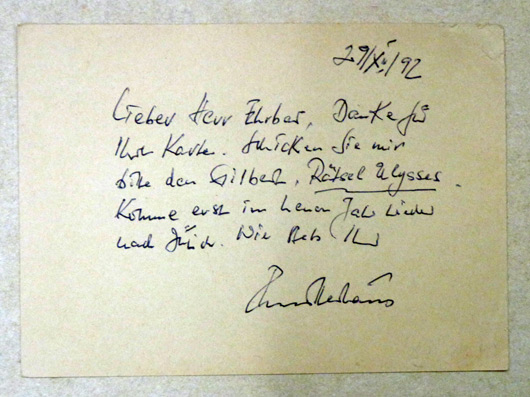 29/XII/92
Lieber Herr Ehrbar, Danke für
Ihre Karte. Schicken Sie mir
bitte den Gilbert, Rätsel Ulysses.
Komme erst im neuen Jahr wieder
nach Zürich. Wie stets Ihr